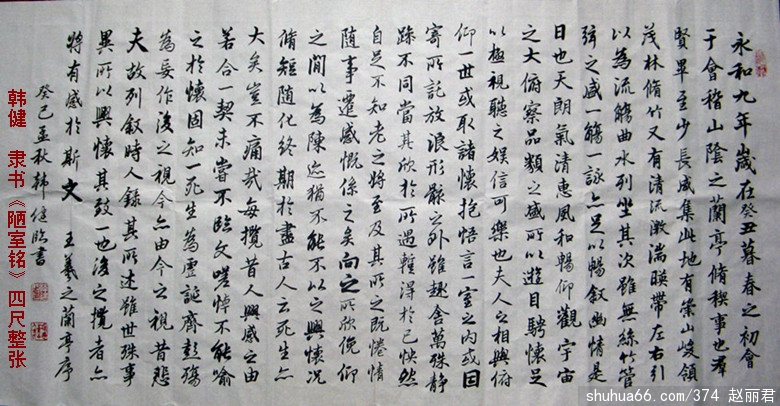 永和九年歲在癸丑暮春之初會
于會稽山陰之蘭亭脩稧事也羣
賢畢至少長咸集此地有崇山峻領
茂林脩竹又有清流激湍暎帶左右引
以為流觴曲水列坐其次雖無絲竹管
弦之盛一觴一詠亦足以暢敘幽情是
日也天朗氣清惠風和暢仰觀宇宙
之大俯察品類之盛所以遊目騁懷足
以極視聽之娛信可樂也夫人之相與俯
仰一世或取諸懷抱悟言一室之內或因
寄所託放浪形骸之外雖趣舍萬殊靜
躁不同當其欣於所遇蹔得於己怏然
自足不知老之將至及其所之既惓情
隨事遷感慨係之矣向之所欣俛仰
之間以為陳迹猶不能不以之興懷況
脩短隨化終期於盡古人云死生亦
大矣豈不痛哉每攬昔人興感之由
若合一契未嘗不臨文嗟悼不能喻
之於懷固知一死生為虛誕齊彭殤
為妄作後之視今亦由今之視昔悲
夫故列敘時人錄其所述雖世殊事
異所以興懷其致一也後之攬者亦
將有感於斯文 王羲之蘭亭序
癸巳孟秋韓健臨書
韩健 隶书《陋室铭》四尺整张
shuhua66.com/374 赵丽君